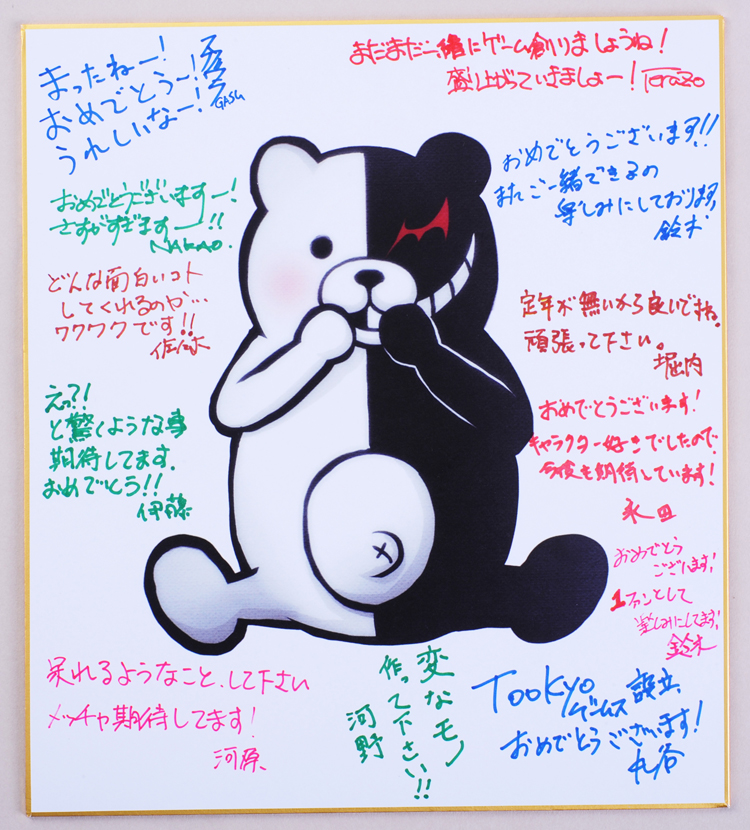 まったねー!
おめでとうー!
うれしいなー!
GASU
まだまだ一緒にゲーム創りましょうね!
盛り上がっていきましょー! Terazo
おめでとうございますー!
さすがすぎますー!!
NAKAO.
おめでとうございます!!
またご一緒できるの
楽しみにしております
鈴木
どんな面白いコト
してくれるのか…
ワクワクです!!
佐々木
定年が無いから良いですね。
頑張って下さい。
堀内
えっ?!
と驚くような事
期待してます.
おめでとう!!
伊藤
おめでとうございます!
キャラクター好きでしたので、
今後も期待しています!
永田
おめでとう
ございます!
1ファンとして
楽しみにしてます!
鈴木
呆れるようなこと、して下さい
メッチャ期待してます!
河原
変なモノ
作って下さい!!
河野
TooKyo
ゲームス 設立
おめでとうございます!
丸谷